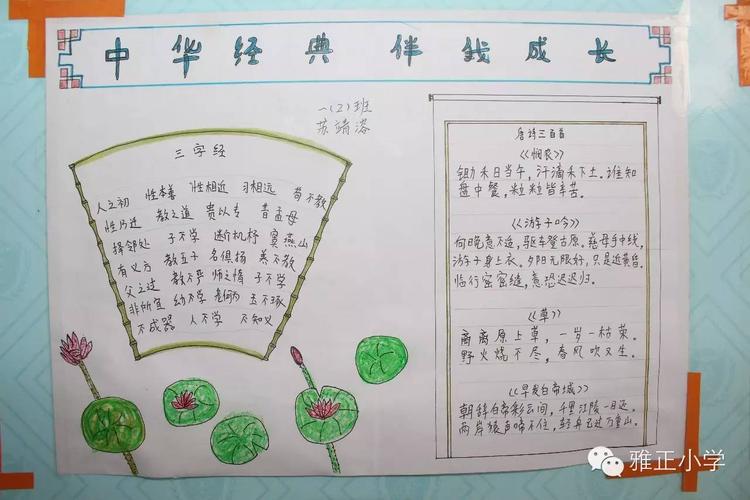 中华经典 伴我成长
一(2)班
苏靖洛
三字经
人之初 性本善 性相近 习相远 苟不教
性乃迁 教之道 贵以专 昔孟母
择邻处 子不学 断机杼 窦燕山
有义方 教五子 名俱扬 养不教
父之过 教不严 师之惰 子不学
非所宜 幼不学 老何为 玉不琢
不成器 人不学 不知义
唐诗三百首
《悯农》
锄禾日当午,汗滴禾下土。谁知
盘中餐,粒粒皆辛苦。
《游子吟》
向晚意不适,驱车登古原。慈母手中线,
游子身上衣。夕阳无限好,只是近黄昏。
临行密密缝,意恐迟迟归。
《草》
离离原上草,一岁一枯荣。
野火烧不尽,春风吹又生。
《早发白帝城》
朝辞白帝彩云间,千里江陵一日还。
两岸猿声啼不住,轻舟已过万重山。
雅正小学